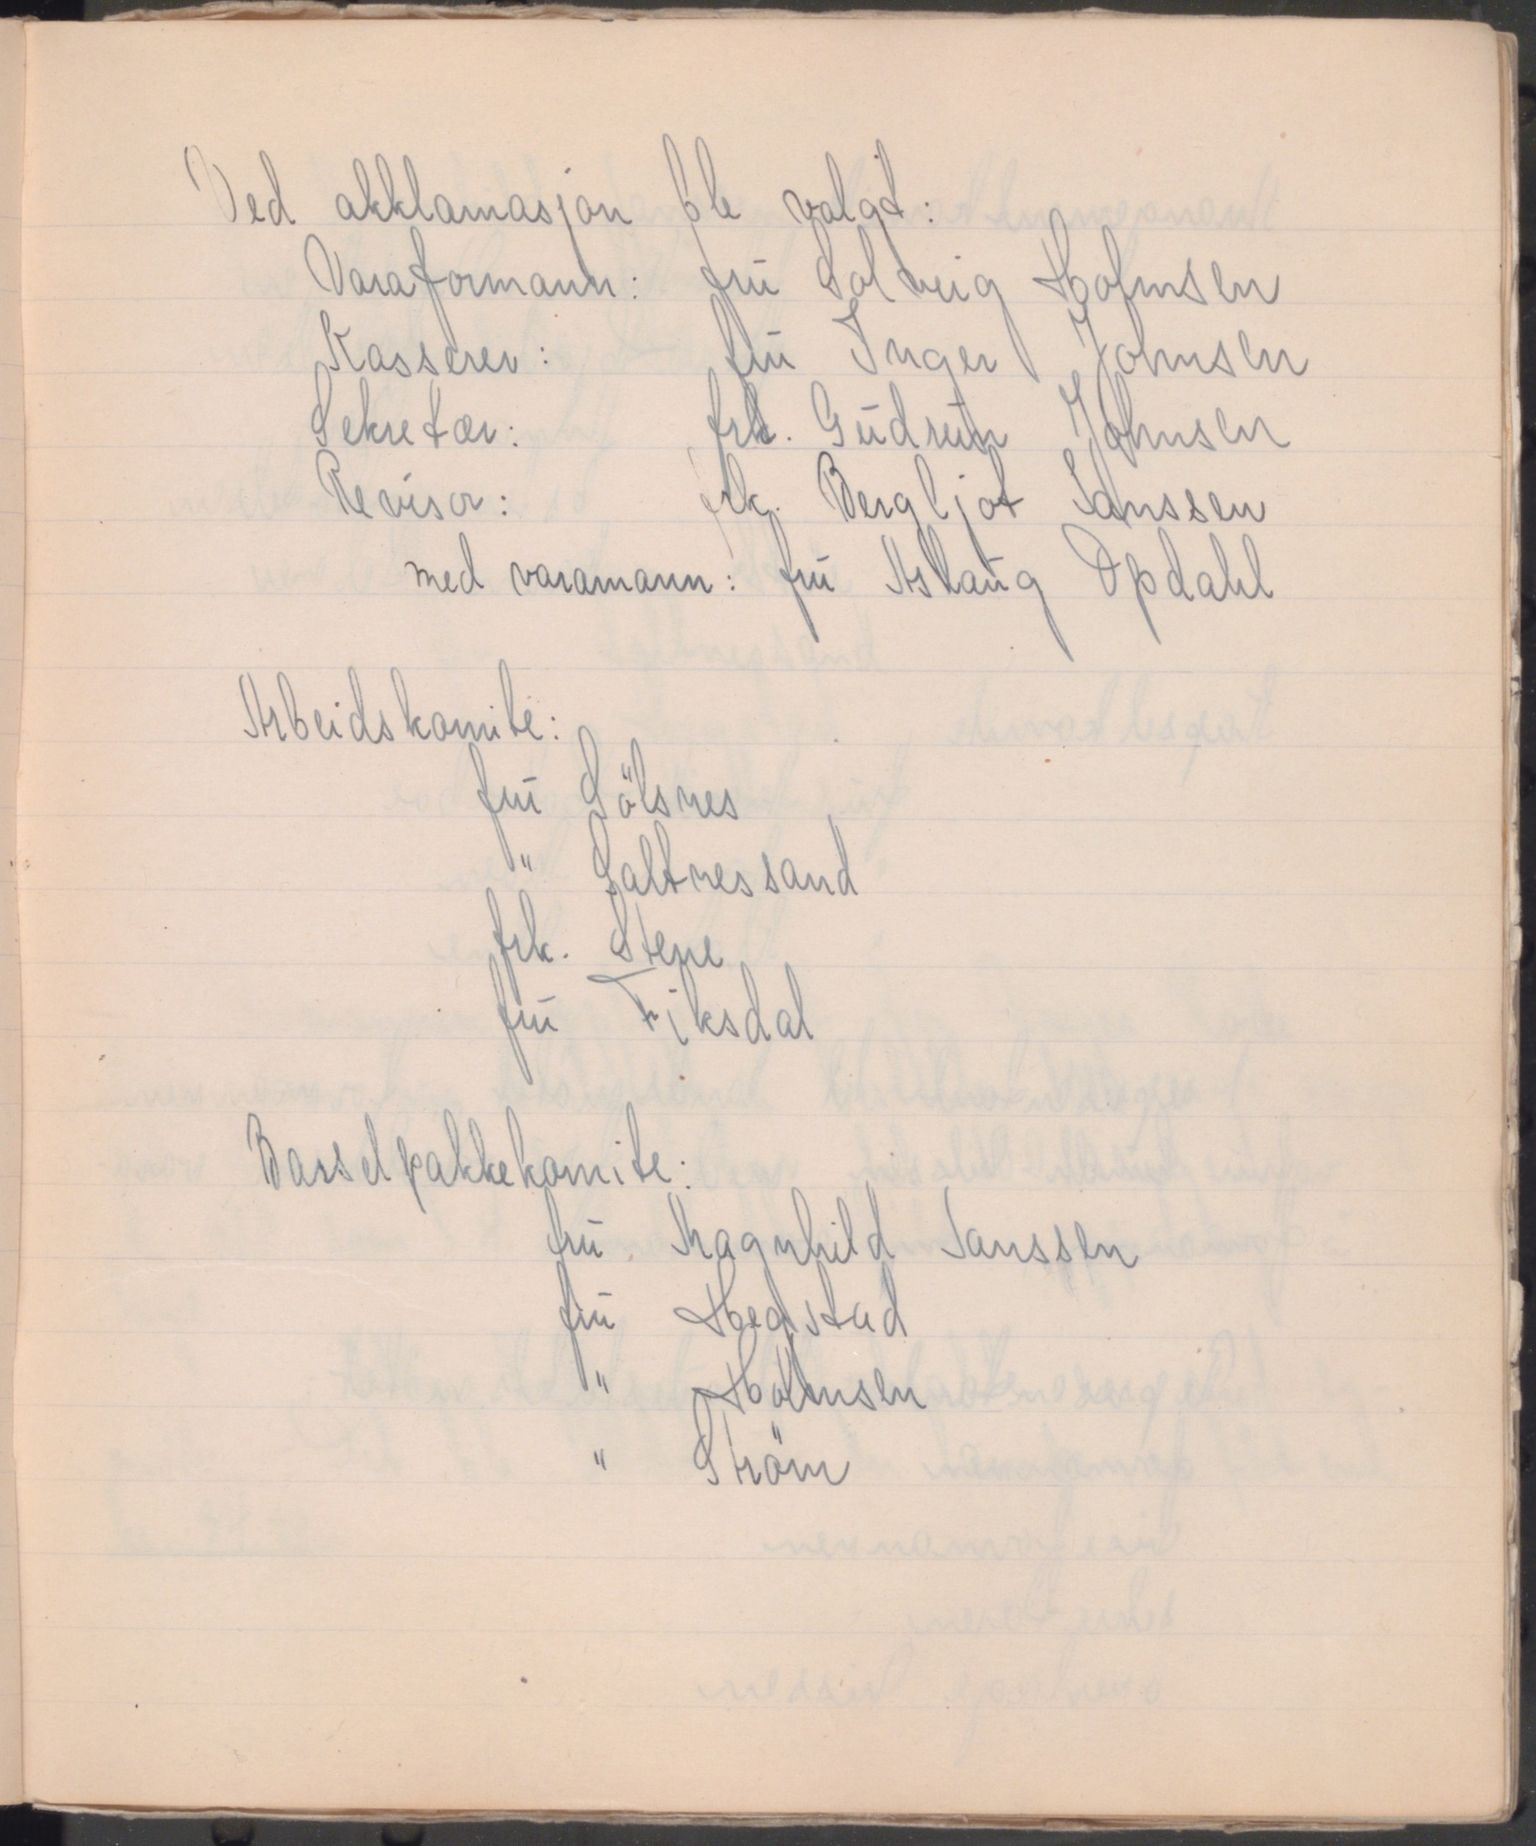 Ved akklamasjon ble valgt:
Varaformann: fru Solveig Holmsen
Kasserer: fru Inger Johnsen
Sekretær: frk. Gudrun Johnsen
Revisor: frk. Bergljot Janssen
med varamann: fru Aslaug Opdahl
Arbeidskomite:
fru Sölsnes
" Saltnessand
frk. Stene
fru Fiksdal
Barselpakkekomite:
fru Ragnhild Janssen
fru Hegstad
" Holmsen
" Ström